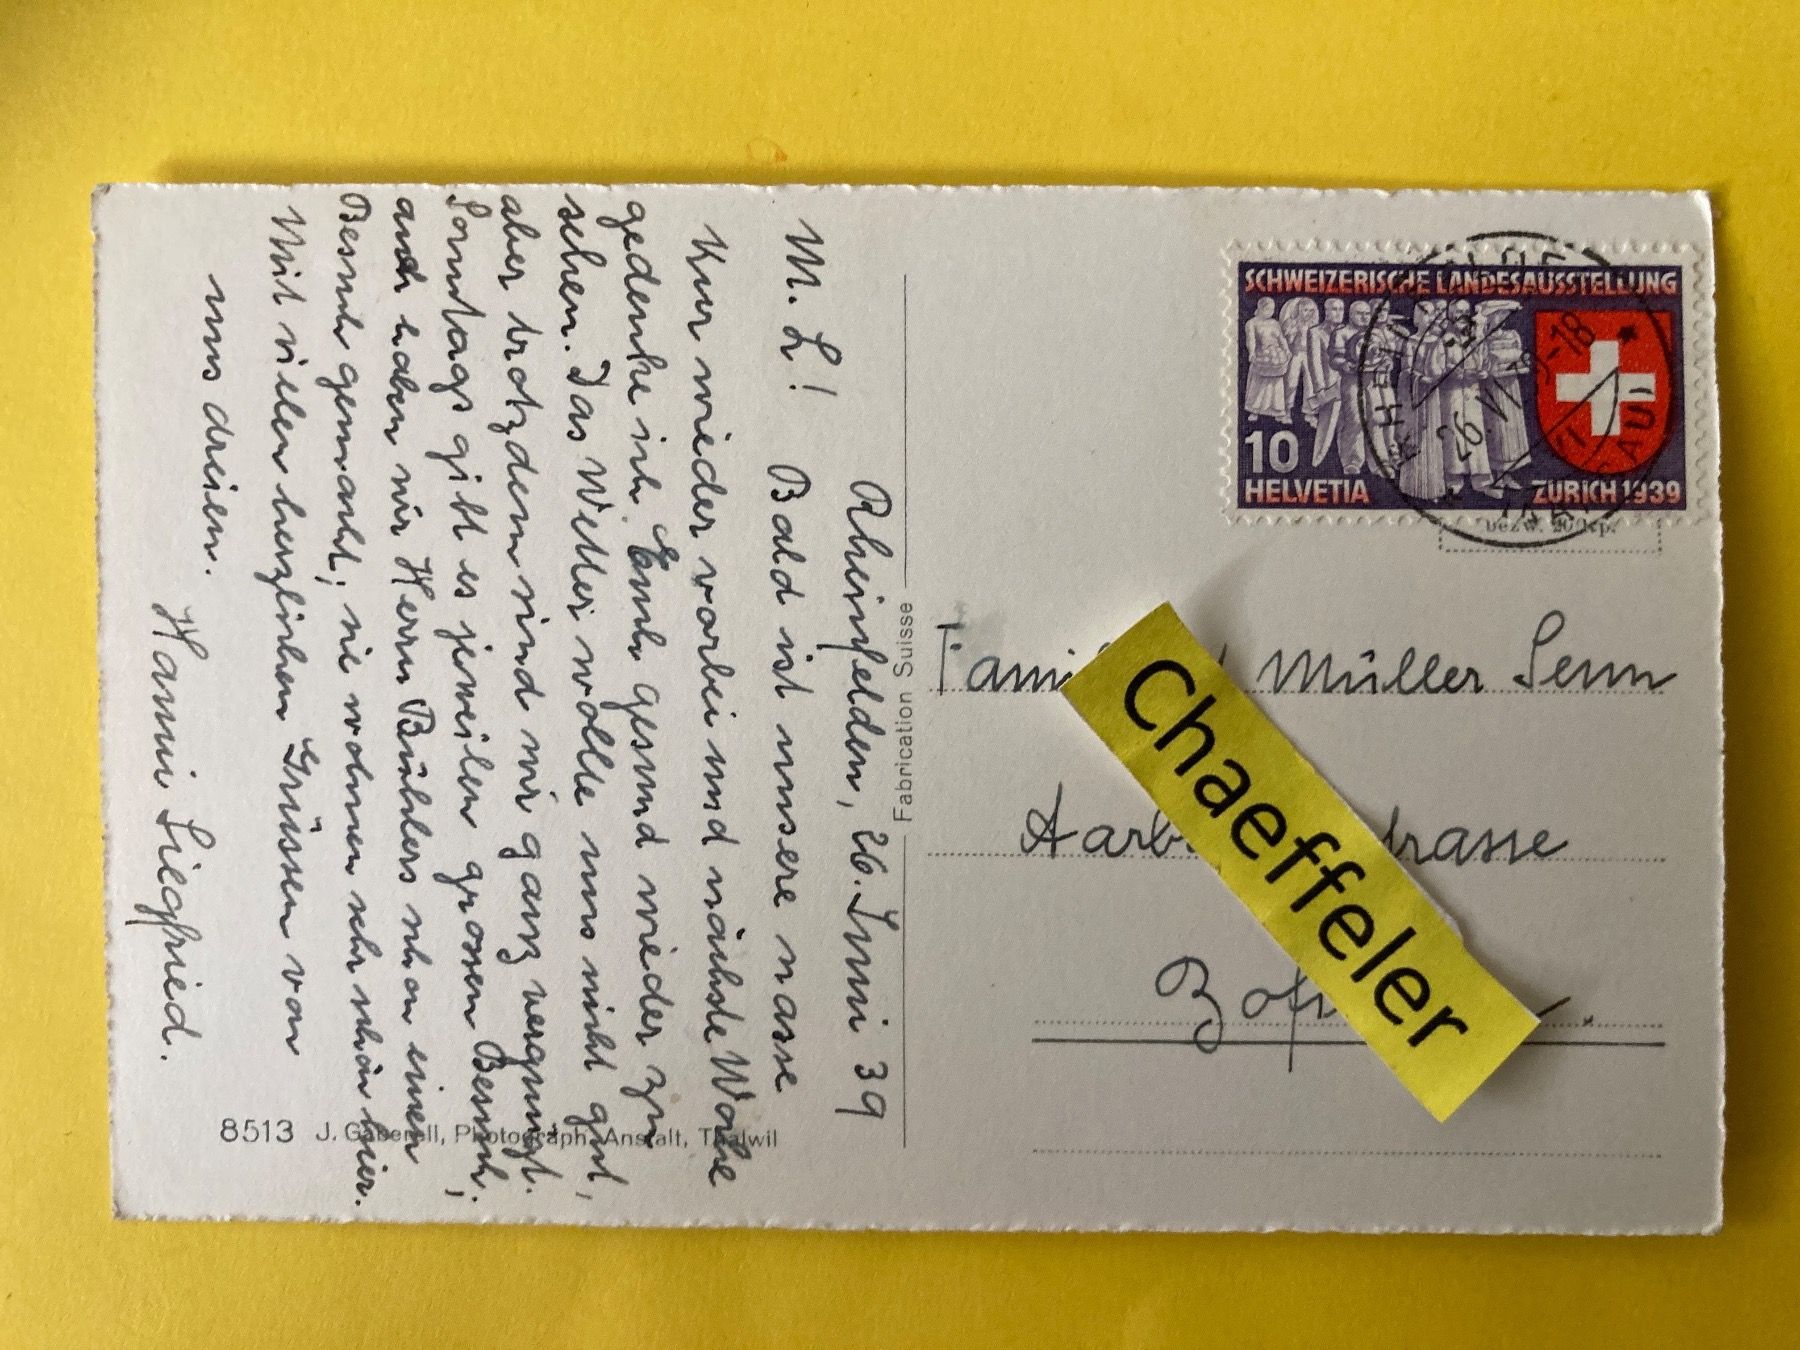 Rheinfelden, 26. Juni 39
M. L! Bald ist unsere nasse
Kur wieder vorbei und nächste Woche
gedenke ich Euch gesund wieder zu
sehen. Das Wetter wollte uns nicht gut,
aber trotzdem sind wir ganz vergnügt.
Sonntags gibt es jeweilen grossen Besuch;
auch haben wir Herrn Bühlers schon einen
Besuch gemacht; sie wohnen sehr schön hier.
Mit vielen herzlichen Grüssen von
uns dreien.
Hanni Siegfried.
8513 J. Gaberell, Photograph. Anstalt, Thalwil
Fabrication Suisse
SCHWEIZERISCHE LANDESAUSSTELLUNG
10
HELVETIA
ZÜRICH 1939
26. VI. 39-18
bezw. 20 Rp.
Müller Senn
Chaeffeler